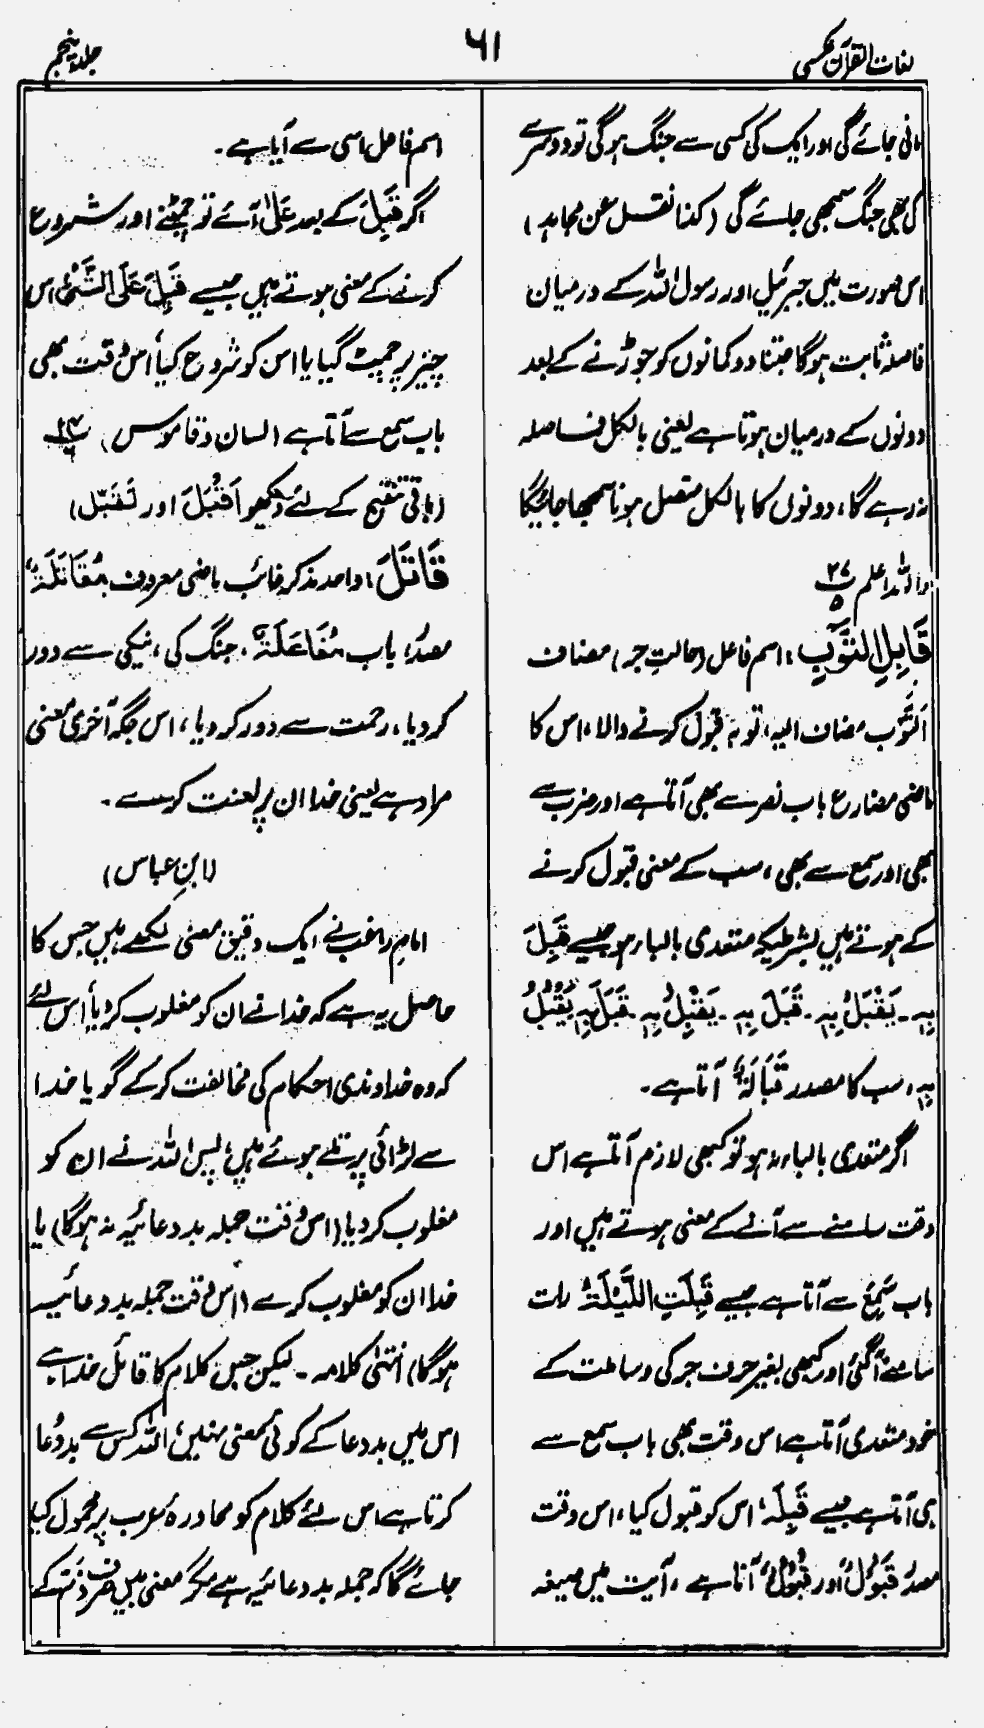 لغات القرآن عکسی
۶۱
جلد پنجم
مانی جائے گی اور ایک کی کسی سے جنگ ہوگی تو دوسرے
کی بھی جنگ سمجھی جائے گی (کذا نقل عن مجاہد)
اس صورت میں جبرئیل اور رسول اللہ کے درمیان
فاصلہ ثابت ہوگا جتنا دو کمانوں کو جوڑنے کے بعد
دونوں کے درمیان ہوتا ہے یعنی بالکل فاصلہ
نہ رہے گا، دونوں کا بالکل متصل ہونا سمجھا جائیگا
واللہ اعلم ۲۷/۵
قَابِلِ التَّوْبِ، اسم فاعل (حالتِ جر) مضاف
اَلتَّوْب مضاف الیہ، توبہ قبول کرنے والا، اس کا
ماضی مضارع باب نصر سے بھی آتا ہے اور ضرب سے
بھی اور سمع سے بھی، سب کے معنی قبول کرنے
کے ہوتے ہیں بشرطیکہ متعدی بالباء ہو جیسے قَبِلَ
بِہٖ۔ یَقْبَلُ بِہٖ۔ قَبَلَ بِہٖ۔ یَقْبِلُ بِہٖ۔ قَبَلَ بِہٖ یَقْبُلُ
بِہٖ، سب کا مصدر قَبَالَۃٌ آتا ہے۔
اگر متعدی بالباء نہ ہو تو کبھی لازم آتا ہے اس
وقت سامنے سے آنے کے معنی ہوتے ہیں اور
باب سَمِعَ سے آتا ہے جیسے قَبِلَتِ اللَّیْلَۃُ رات
سامنے آگئی اور کبھی بغیر حرف جر کی وساطت کے
خود متعدی آتا ہے اس وقت بھی باب سمع سے
ہی آتا ہے جیسے قَبِلَہٗ اس کو قبول کیا، اس وقت
مصدر قَبُوْلٌ اور قُبُوْلٌ آتا ہے، آیت میں صیغہ
اسم فاعل اسی سے آیا ہے۔
اگر قَبِلَ کے بعد عَلٰی آئے تو چمٹنے اور شروع
کرنے کے معنی ہوتے ہیں جیسے قَبِلَ عَلَی الشَّیْءِ اس
چیز پر چمٹ گیا یا اس کو شروع کیا، اس وقت بھی
باب سمع سے آتا ہے (لسان و قاموس)
(باقی تنقیح کے لئے دیکھو اَقْبَلَ اور تَقَبَّل)
قَاتَلَ، واحد مذکر غائب ماضی معروف مُقَاتَلَۃٌ
مصدر، باب مُفَاعَلَۃٌ، جنگ کی، نیکی سے دور
کر دیا، رحمت سے دور کر دیا، اس جگہ آخری معنی
مراد ہے یعنی خدا ان پر لعنت کرے۔
(ابن عباس)
امام راغب نے ایک دقیق معنی لکھے ہیں جس کا
حاصل یہ ہے کہ خدا نے ان کو مغلوب کر دیا، اس لئے
کہ وہ خداوندی احکام کی مخالفت کر کے گویا خدا
سے لڑائی پر تلے ہوئے ہیں، پس اللہ نے ان کو
مغلوب کر دیا (اس وقت جملہ بد دعائیہ نہ ہوگا) یا
خدا ان کو مغلوب کرے (اس وقت جملہ بد دعائیہ
ہوگا) انتہیٰ کلامہ۔ لیکن جس کلام کا قائل خدا ہے
اس میں بد دعا کے کوئی معنی نہیں، اللہ کس سے بد دعا
کرتا ہے اس لئے کلام کو محاورۂ عرب پر محمول کیا
جائے گا کہ جملہ بد دعائیہ ہے مگر معنی میں صرف ذَم کے